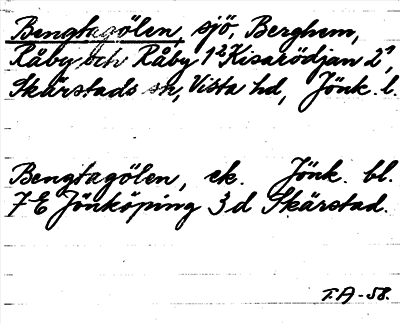 Bengtagölen, sjö, Berghem,
Råby och Råby 1² Kisarödjan 2¹,
Skärstads sn, Vista hd, Jönk. l.
Bengtagölen, ek. Jönk. bl.
7 E Jönköping 3 d Skärstad.
T.A-58.